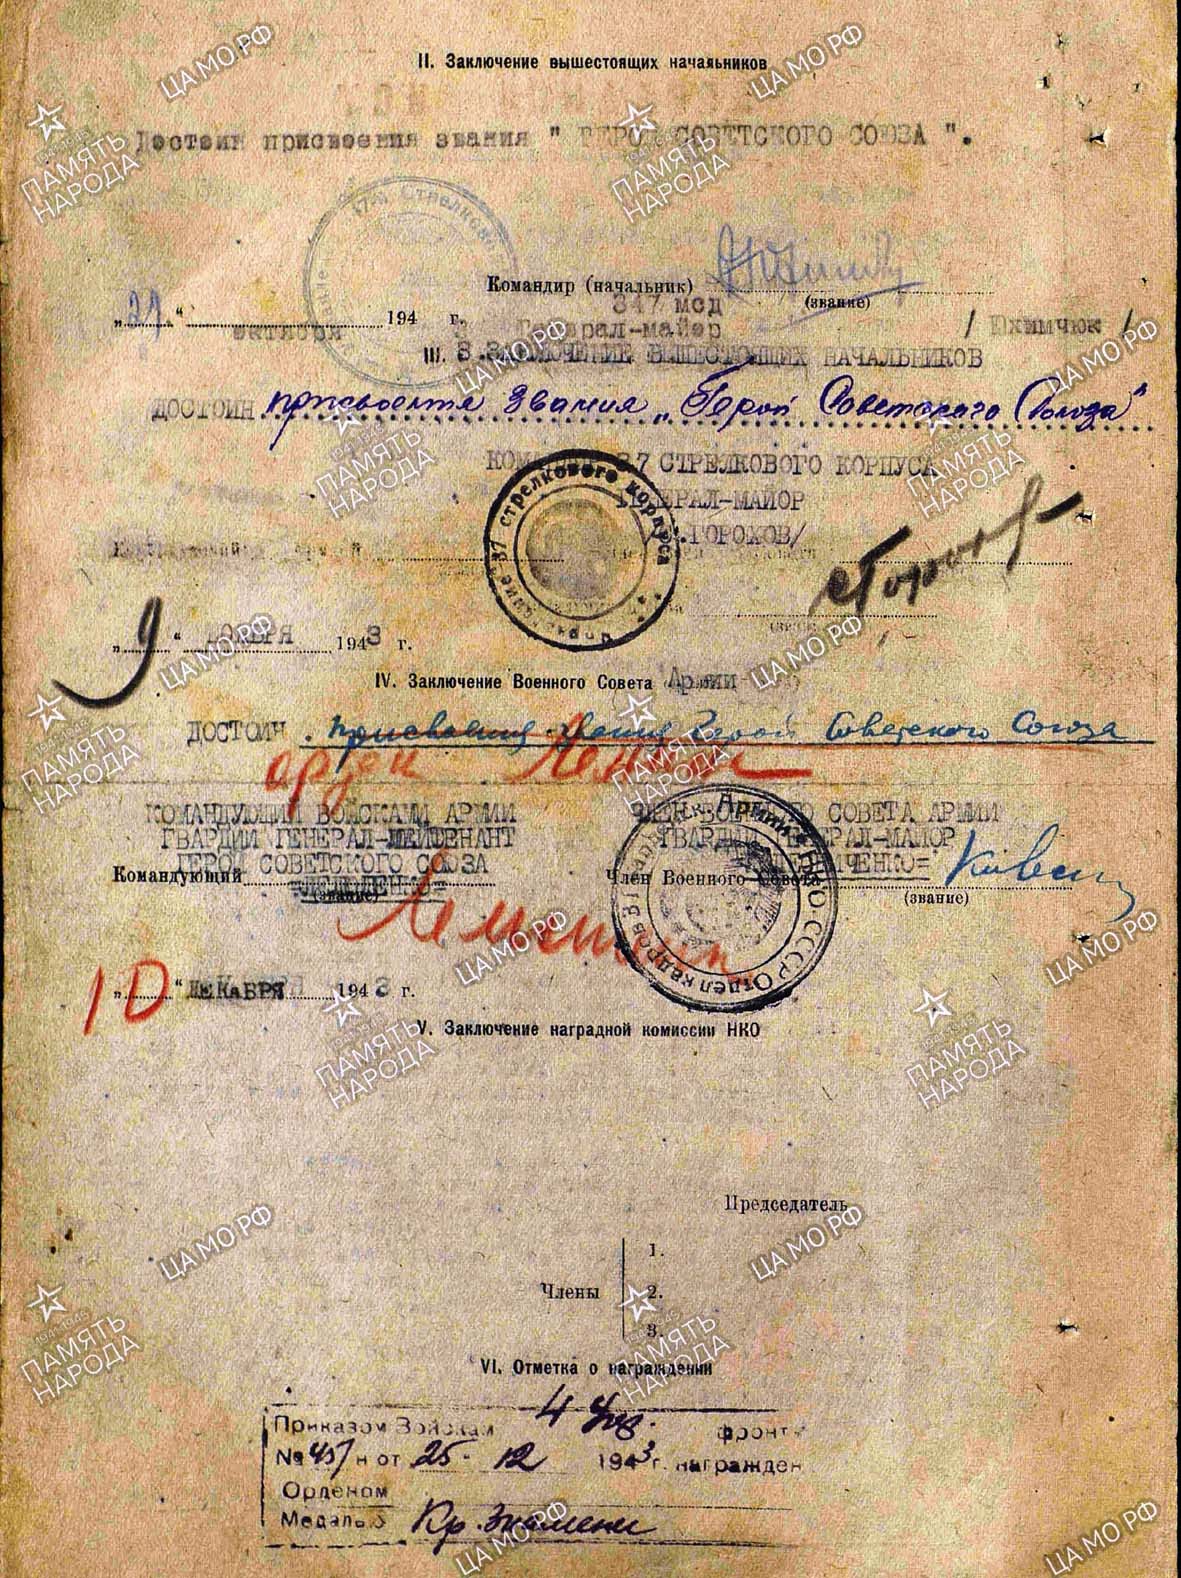 II. Заключение вышестоящих начальников
Достоин присвоения звания " ГЕРОЙ СОВЕТСКОГО СОЮЗА ".
Командир (начальник)
(звание)
347 мсд
„ “ октября 194 г.
Генерал-майор / Юхимчюк /
III. 3. ЗАКЛЮЧЕНИЕ ВЫШЕСТОЯЩИХ НАЧАЛЬНИКОВ
ДОСТОИН присвоения звания „Герой Советского Союза"
КОМАНДИР 37 СТРЕЛКОВОГО КОРПУСА
ГЕНЕРАЛ-МАЙОР
ГОРОХОВ/
37 стрелкового корпуса
„9“ НОЯБРЯ 1943 г.
IV. Заключение Военного Совета Армии
ДОСТОИН присвоения звания Герой Советского Союза
орден Ленина
КОМАНДУЮЩИЙ ВОЙСКАМИ АРМИИ
ГВАРДИИ ГЕНЕРАЛ-ЛЕЙТЕНАНТ
ГЕРОЙ СОВЕТСКОГО СОЮЗА
Командующий
(звание)
ЧЛЕН ВОЕННОГО СОВЕТА АРМИИ
ГВАРДИИ ГЕНЕРАЛ-МАЙОР
Член Военного Совета
(звание)
НКО-СССР Отдел кадров
„10“ ДЕКАБРЯ 1943 г.
V. Заключение наградной комиссии НКО
Председатель
Члены
1.
2.
3.
VI. Отметка о награждении
Приказом Войскам 4 Укр. фронта
№ 457 н от 25-12 1943 г. награжден
Орденом
Медалью Кр. Знамени
ПАМЯТЬ НАРОДА
1941-1945
ЦА МО РФ